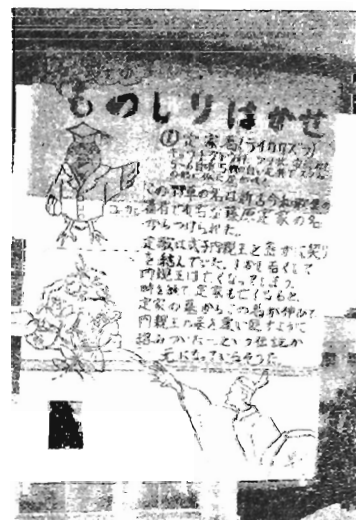 ものしりはかせ
①定家葛(テイカカズラ)
この野草の名は新古今和歌集の
撰者で有名な藤原定家の名
からつけられた。
定家は式子内親王と密かに契り
を結んでいた。しかし若くして
内親王は亡くなってしまう。
時を経て定家も亡くなると、
定家の墓からこの葛が伸びて
内親王の墓を覆い隠すように
絡みついた…という伝説が
元になっているそうだ。